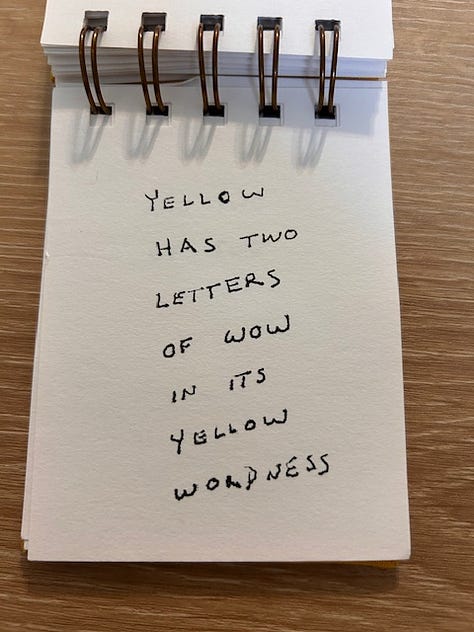 YELLOW
HAS TWO
LETTERS
OF WOW
IN ITS
YELLOW
WORDNESS